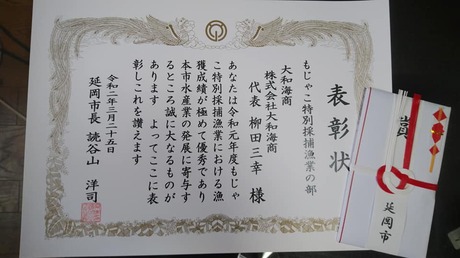 表彰状
もじゃこ特別採捕漁業の部
大和海商
株式会社大和海商
代表 柳田三幸 様
あなたは令和元年度もじゃ
こ特別採捕漁業における漁
獲成績が極めて優秀であり
本市水産業の発展に寄与す
るところ誠に大なるものが
あります よってここに表
彰しこれを讃えます
令和二年三月二十五日
延岡市長 読谷山 洋司
賞
延岡市